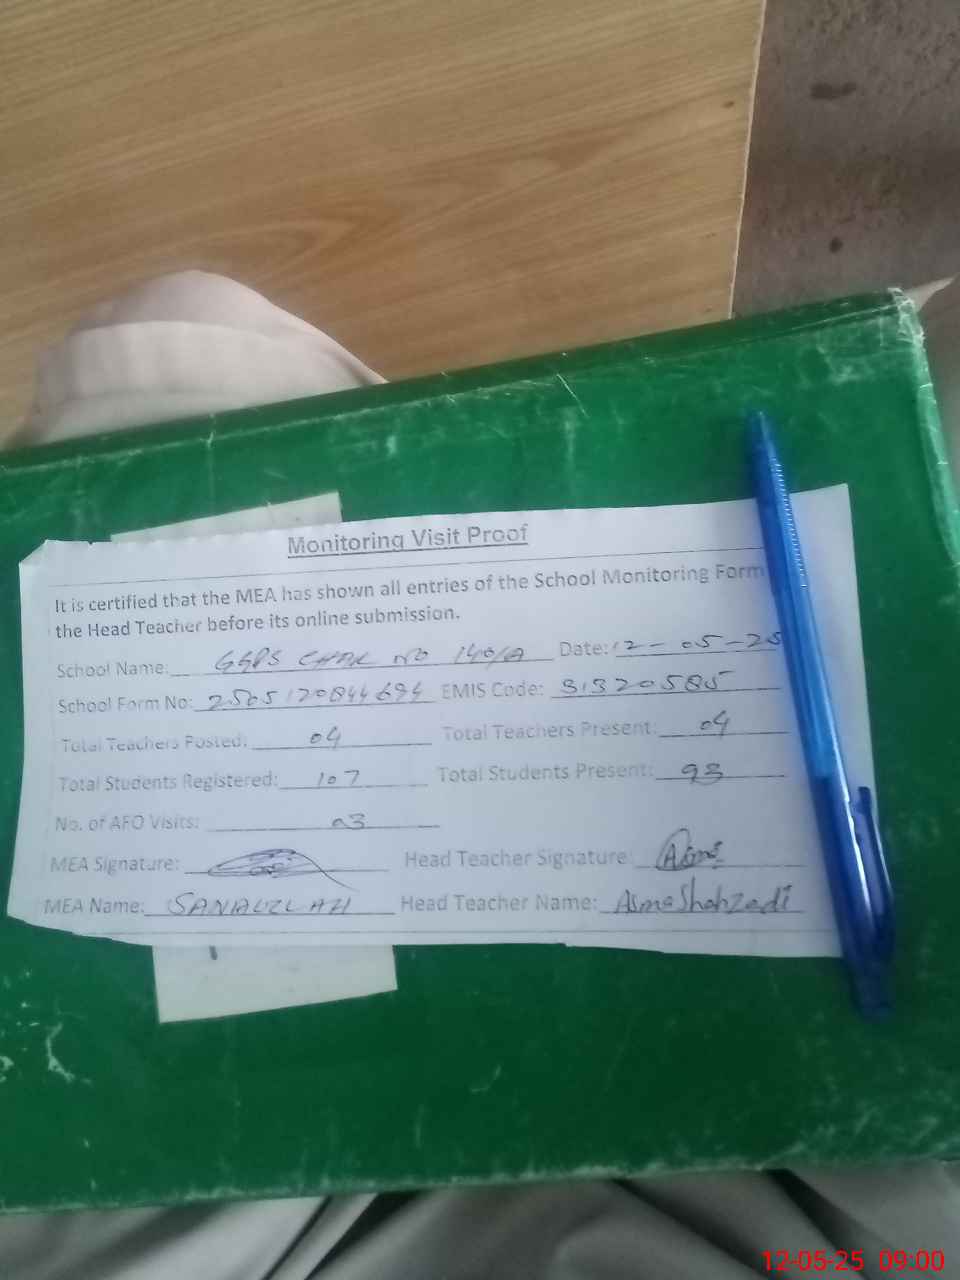 Monitoring Visit Proof
It is certified that the MEA has shown all entries of the School Monitoring Form
the Head Teacher before its online submission.
School Name: GGPS CHAK NO 140/A Date: 12-05-25
School Form No: 250512084469 EMIS Code: 31320585
Total Teachers Posted: 04 Total Teachers Present: 04
Total Students Registered: 107 Total Students Present: 93
No. of AFO Visits: 03
MEA Signature: Head Teacher Signature: Asma
MEA Name: SANAULLAH Head Teacher Name: Asma Shahzadi
12-05-25 09:00